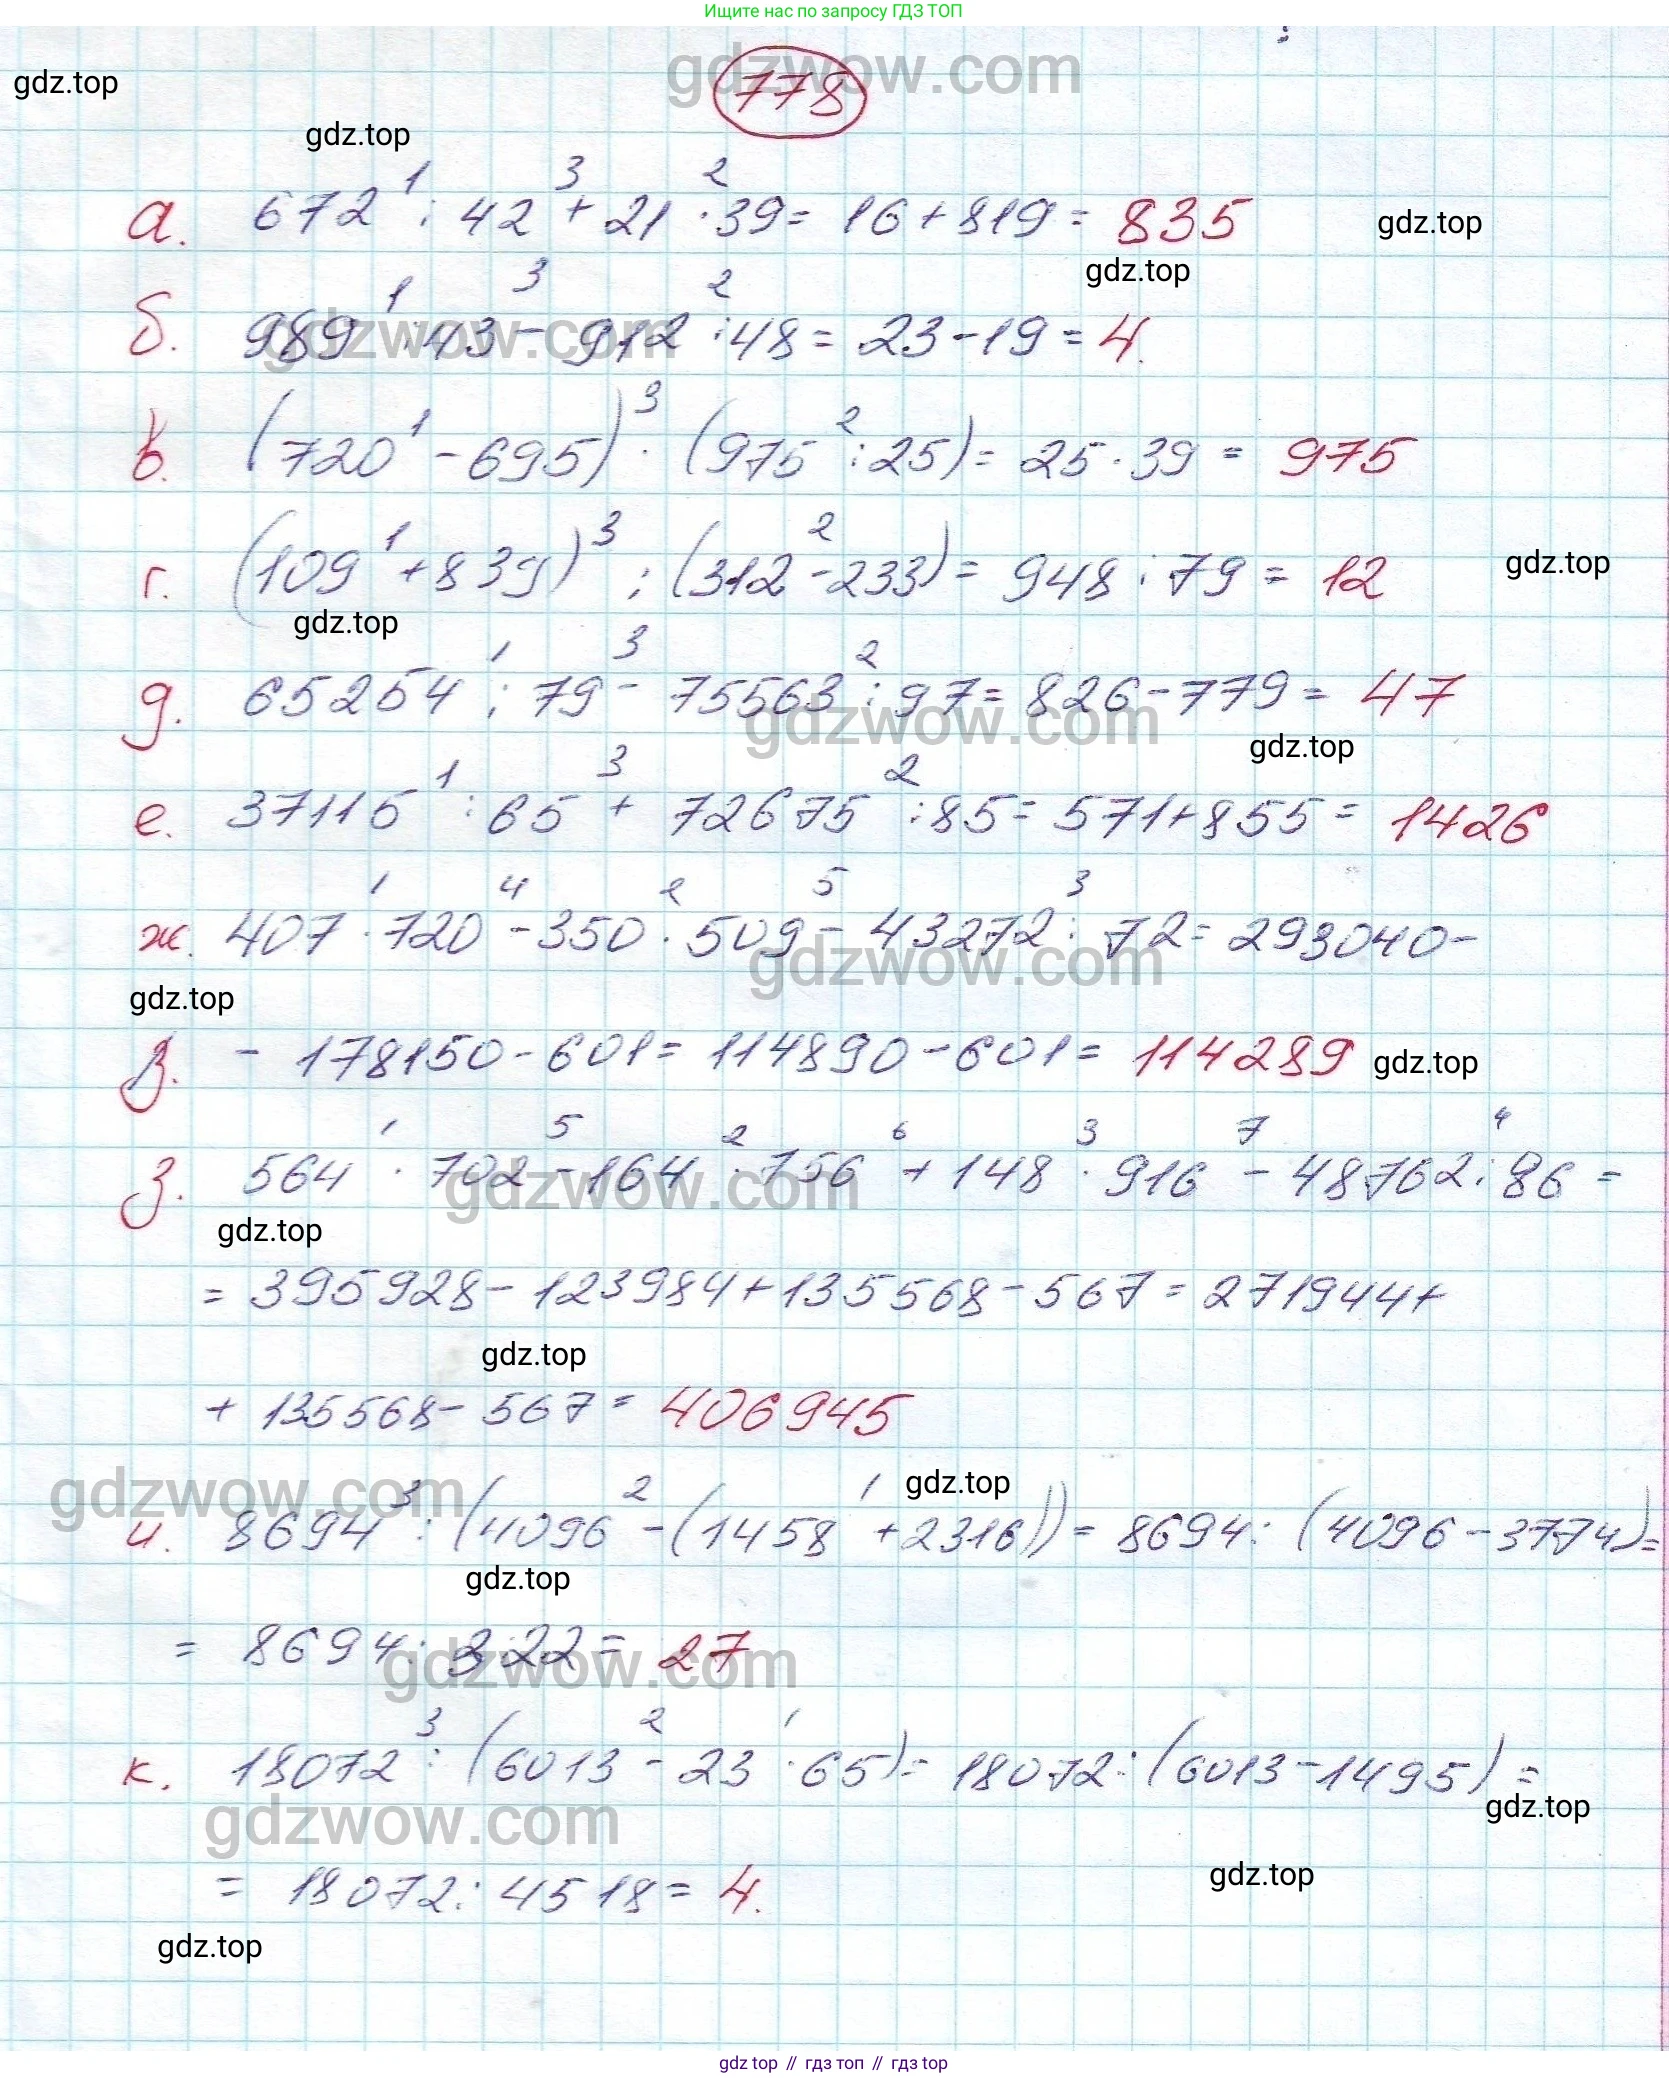 Ищите нас по запросу ГДЗ ТОП
gdzwow.com
778
gdz.top
gdz.top
1 3 2
а. 672 : 42 + 21 · 39 = 16 + 819 = 835
gdz.top
gdz.top
1 3 2
б. 989 : 43 - 912 : 48 = 23 - 19 = 4.
gdzwow.com
1 3 2
в. (720 - 695) · (975 : 25) = 25 · 39 = 975
1 3 2
г. (109 + 839) : (312 - 233) = 948 : 79 = 12
gdz.top
gdz.top
1 3 2
д. 65254 : 79 - 75563 : 97 = 826 - 779 = 47
gdzwow.com
gdz.top
1 3 2
е. 37115 : 65 + 72675 : 85 = 571 + 855 = 1426
1 4 2 5 3
ж. 407 · 720 - 350 · 509 - 43272 : 72 = 293040 -
gdzwow.com
gdz.top
- 178150 - 601 = 114890 - 601 = 114289
gdz.top
1 5 2 6 3 7 4
з. 564 · 702 - 164 · 756 + 148 · 916 - 48762 : 86 =
gdzwow.com
gdz.top
= 395928 - 123984 + 135568 - 567 = 271944 +
gdz.top
+ 135568 - 567 = 406945
gdzwow.com
gdz.top
3 2 1
и. 8694 : (4096 - (1458 + 2316)) = 8694 : (4096 - 3774) =
gdz.top
= 8694 : 322 = 27
gdzwow.com
3 2 1
к. 18072 : (6013 - 23 · 65) = 18072 : (6013 - 1495) =
gdzwow.com
gdz.top
= 18072 : 4518 = 4.
gdz.top
gdz.top
gdz top // гдз топ // гдз top